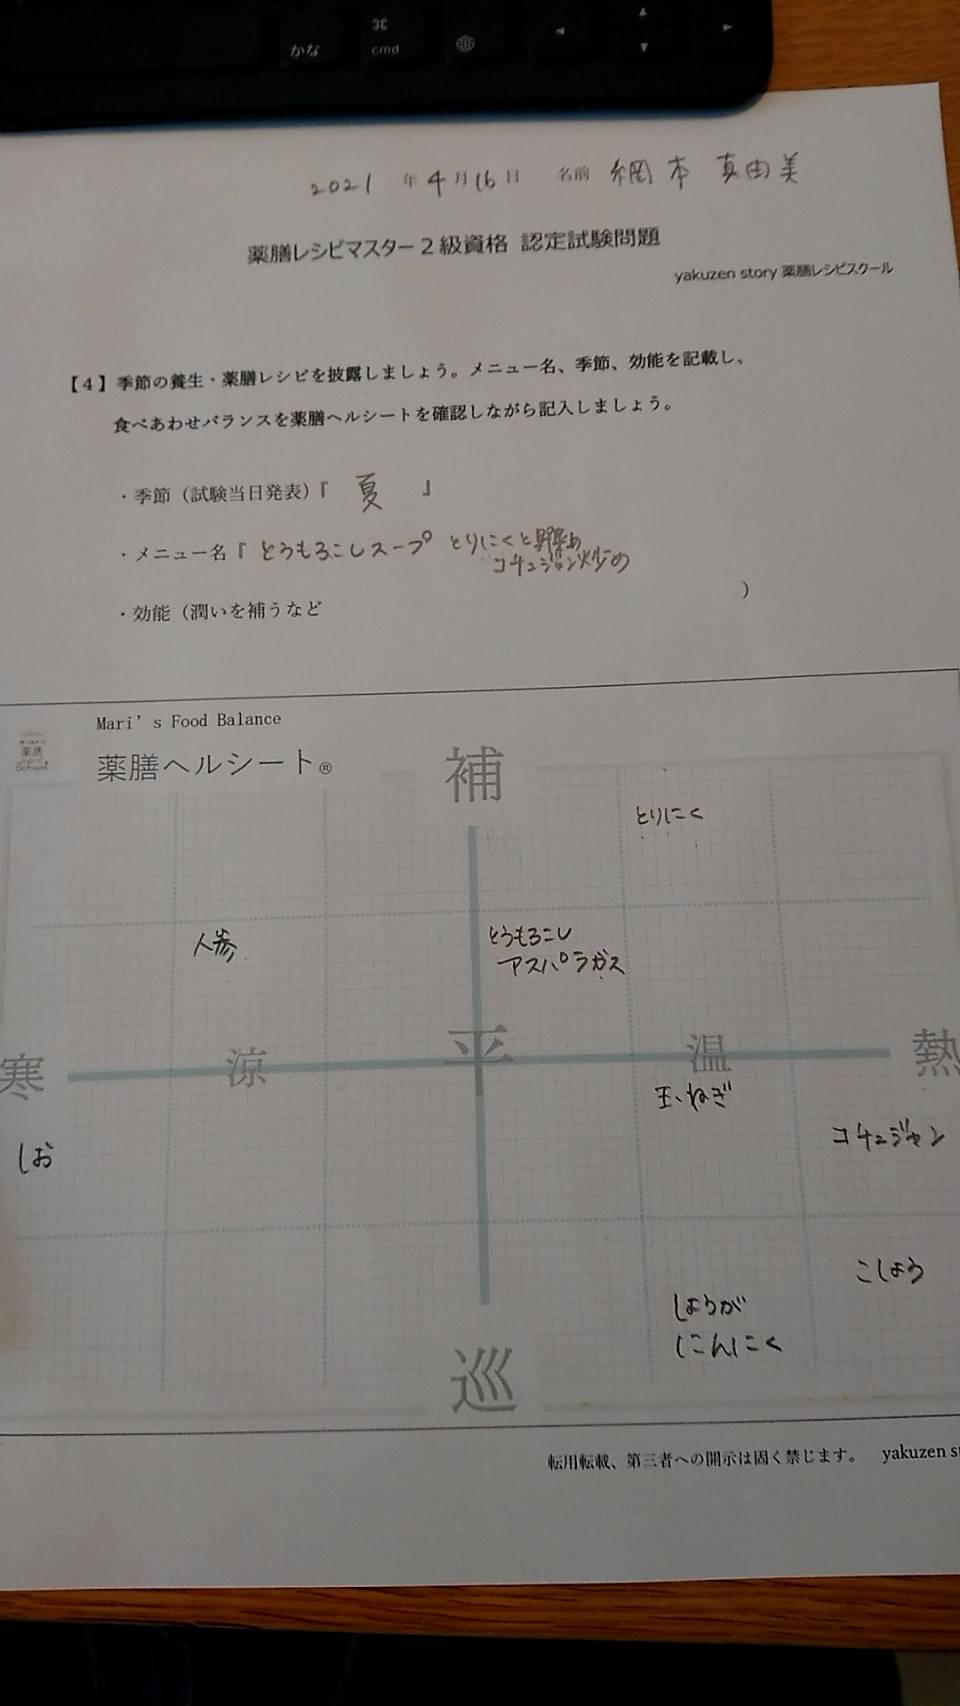 かな
⌘
cmd
2021 年 4月16日 名前 綱本 真由美
薬膳レシピマスター2級資格 認定試験問題
yakuzen story 薬膳レシピスクール
【4】季節の養生・薬膳レシピを披露しましょう。メニュー名、季節、効能を記載し、
食べあわせバランスを薬膳ヘルシートを確認しながら記入しましょう。
・季節（試験当日発表）『 夏 』
・メニュー名『 とうもろこしスープ とりにくと野菜の
コチュジャン炒め
・効能（潤いを補うなど ）
Mari's Food Balance
薬膳
School
薬膳ヘルシート®
補
とりにく
人参
とうもろこし
アスパラガス
寒 涼 平 温 熱
玉ねぎ
コチュジャン
しお
こしょう
しょうが
にんにく
巡
転用転載、第三者への開示は固く禁じます。 yakuzen st